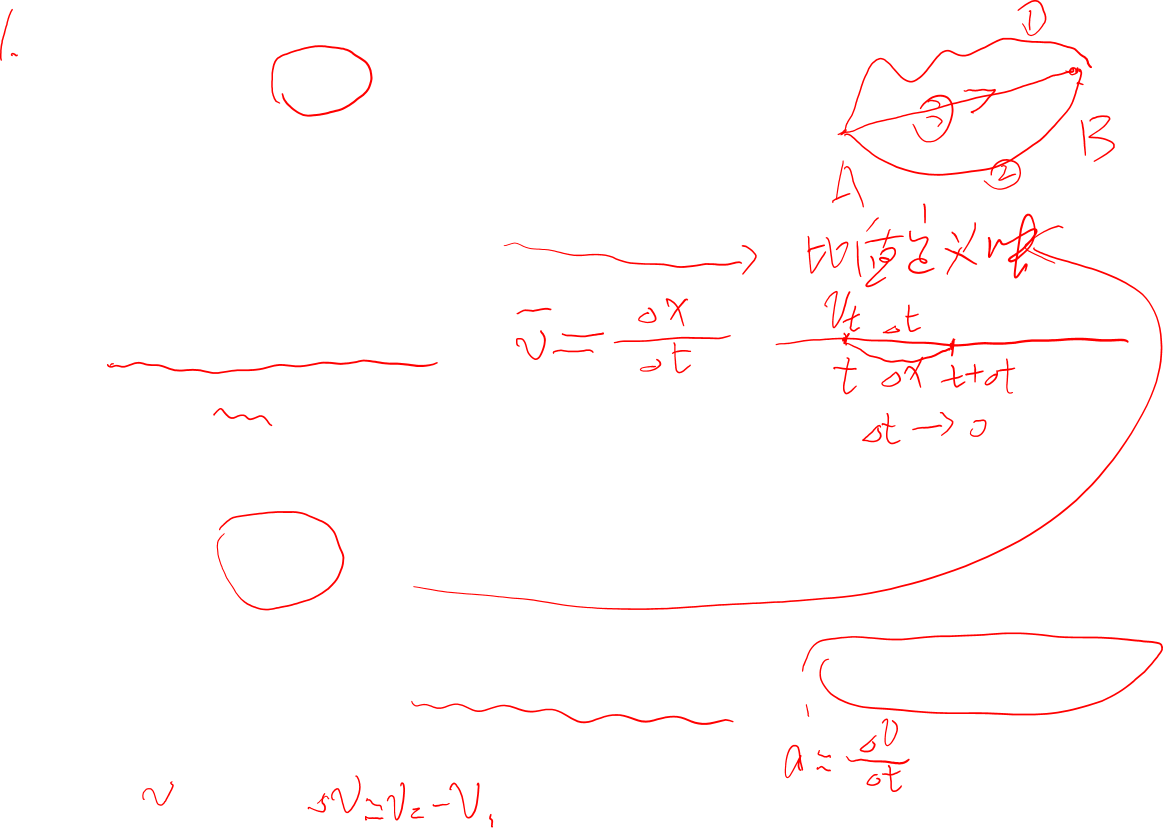 1.
①
③
B
②
A
比值定义法
v̄ = Δx/Δt
Vt Δt
t Δx t+Δt
Δt → 0
a = Δv/Δt
v ΔV = V₂ - V₁